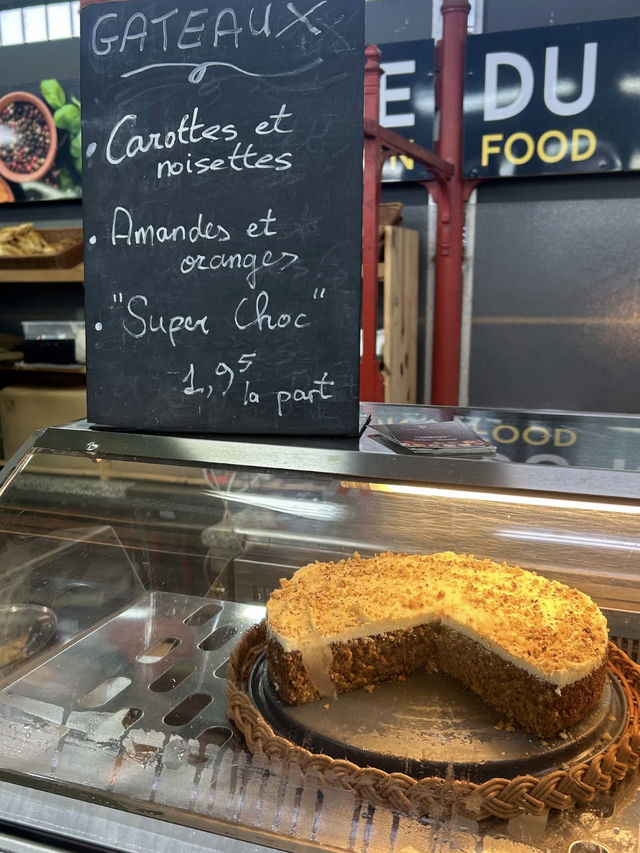 GATEAUX
• Carottes et
noisettes
• Amandes et
oranges
• "Super Choc"
1,95 la part
E DU
N FOOD
OOD